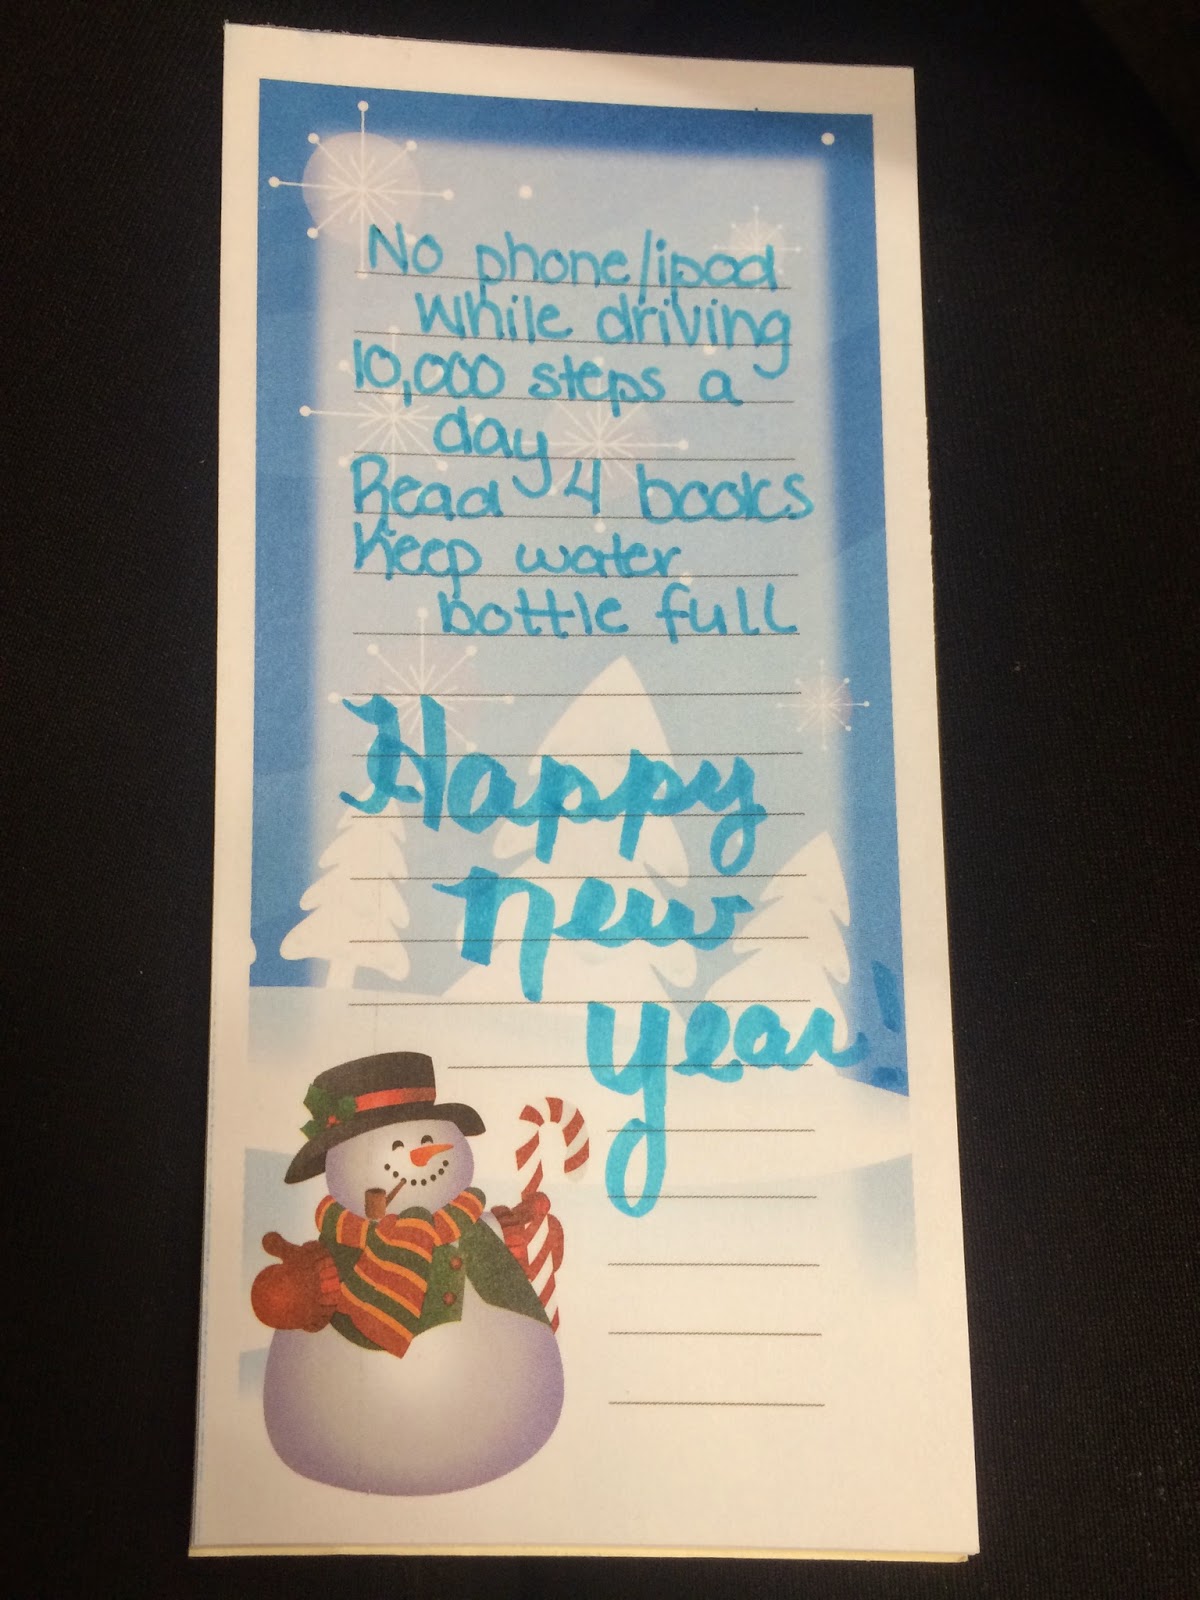 No phone/ipod
While driving
10,000 steps a
day
Read 4 books
Keep water
bottle full
Happy
New
Year!